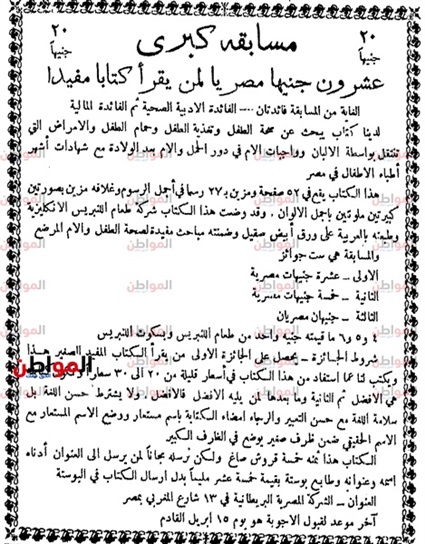 ٢٠ جنيهاً
مسابقه كبرى
٢٠ جنيهاً
عشرون جنيها مصريا لمن يقرأ كتابا مفيدا
الغاية من المسابقة فائدتان — الفائدة الادبية الصحية ثم الفائدة المالية
لدينا كتاب يبحث عن صحة الطفل وتغذية الطفل وحمام الطفل والامراض التي
تنتقل بواسطة الالبان وواجبات الام في دور الحمل والام بعد الولادة مع شهادات أشهر
أطباء الاطفال في مصر
هذا الكتاب يقع في ٥٢ صفحة ومزين بـ ٢٧ رسما في أجمل الرسوم وغلافه مزين بصورتين
كبيرتين ملونتين باجمل الالوان . وقد وضعت هذا الكتاب شركة طعام اللنبريس الانكليزية
وطبعته بالعربية على ورق أبيض صقيل وضمنته مباحث مفيدة لصحة الطفل والام المرضع
والمسابقة هي ست جوائز
الاولى — عشرة جنيهات مصرية
الثانية — خمسة جنيهات مصرية
الثالثة — جنيهان مصريان
٤ و ٥ و ٦ ما قيمته جنيه واحد من طعام اللنبريس وبسكوت اللنبريس
شروط الجائزة — يحصل على الجائزة الاولى من يقرأ الكتاب المفيد الصغير هذا
ويكتب لنا عما استفاد من هذا الكتاب في أسطر قليلة من ٢٠ الى ٣٠ سطرا
هي الافضل ثم الثانية وما بعدها لمن يليه الافضل فالافضل . ولا يشترط حسن اللغة بل
سلامة اللغة مع حسن التعبير والرجاء امضاء الكتابة باسم مستعار ووضع الاسم المستعار مع
الاسم الحقيقي ضمن ظرف صغير يوضع في الظرف الكبير
الكتاب هذا ثمنه خمسة قروش صاغ ولكن نرسله مجاناً لمن يرسل الى العنوان أدناه
اسمه وعنوانه وطابع بوستة بقيمة خمسة عشر مليماً بدل ارسال الكتاب في البوستة
العنوان — الشركة المصرية البريطانية في ١٣ شارع المغربي بمصر
آخر موعد لقبول الاجوبة هو يوم ١٥ ابريل القادم
المواطن